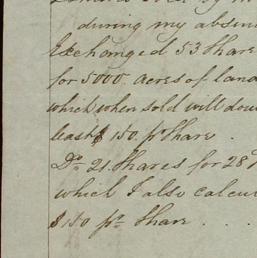 during my absen
Exchanged 53 Share
for 5000 acres of land
which when sold will dou
least $ 150 pr Share.
Do 21 Shares for 28
which I also calcu
$150 pr Share . . .